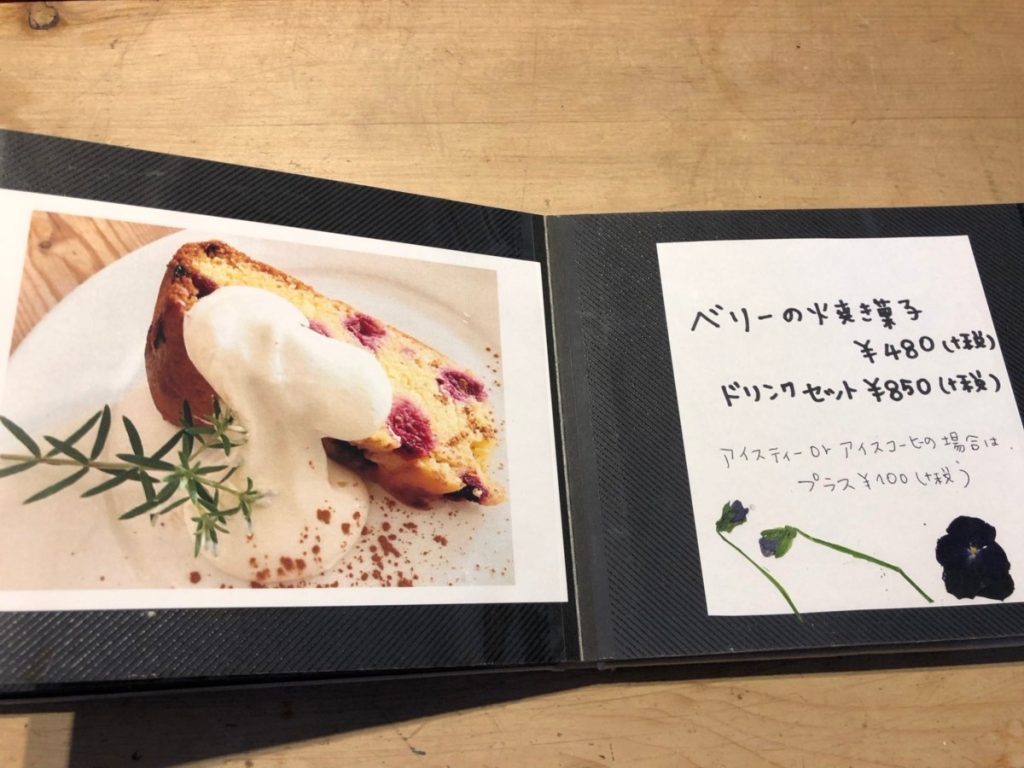 ベリーの火焼き菓子
¥480(+税)
ドリンクセット ¥850(+税)
アイスティー or アイスコーヒーの場合は、
プラス¥100(+税)